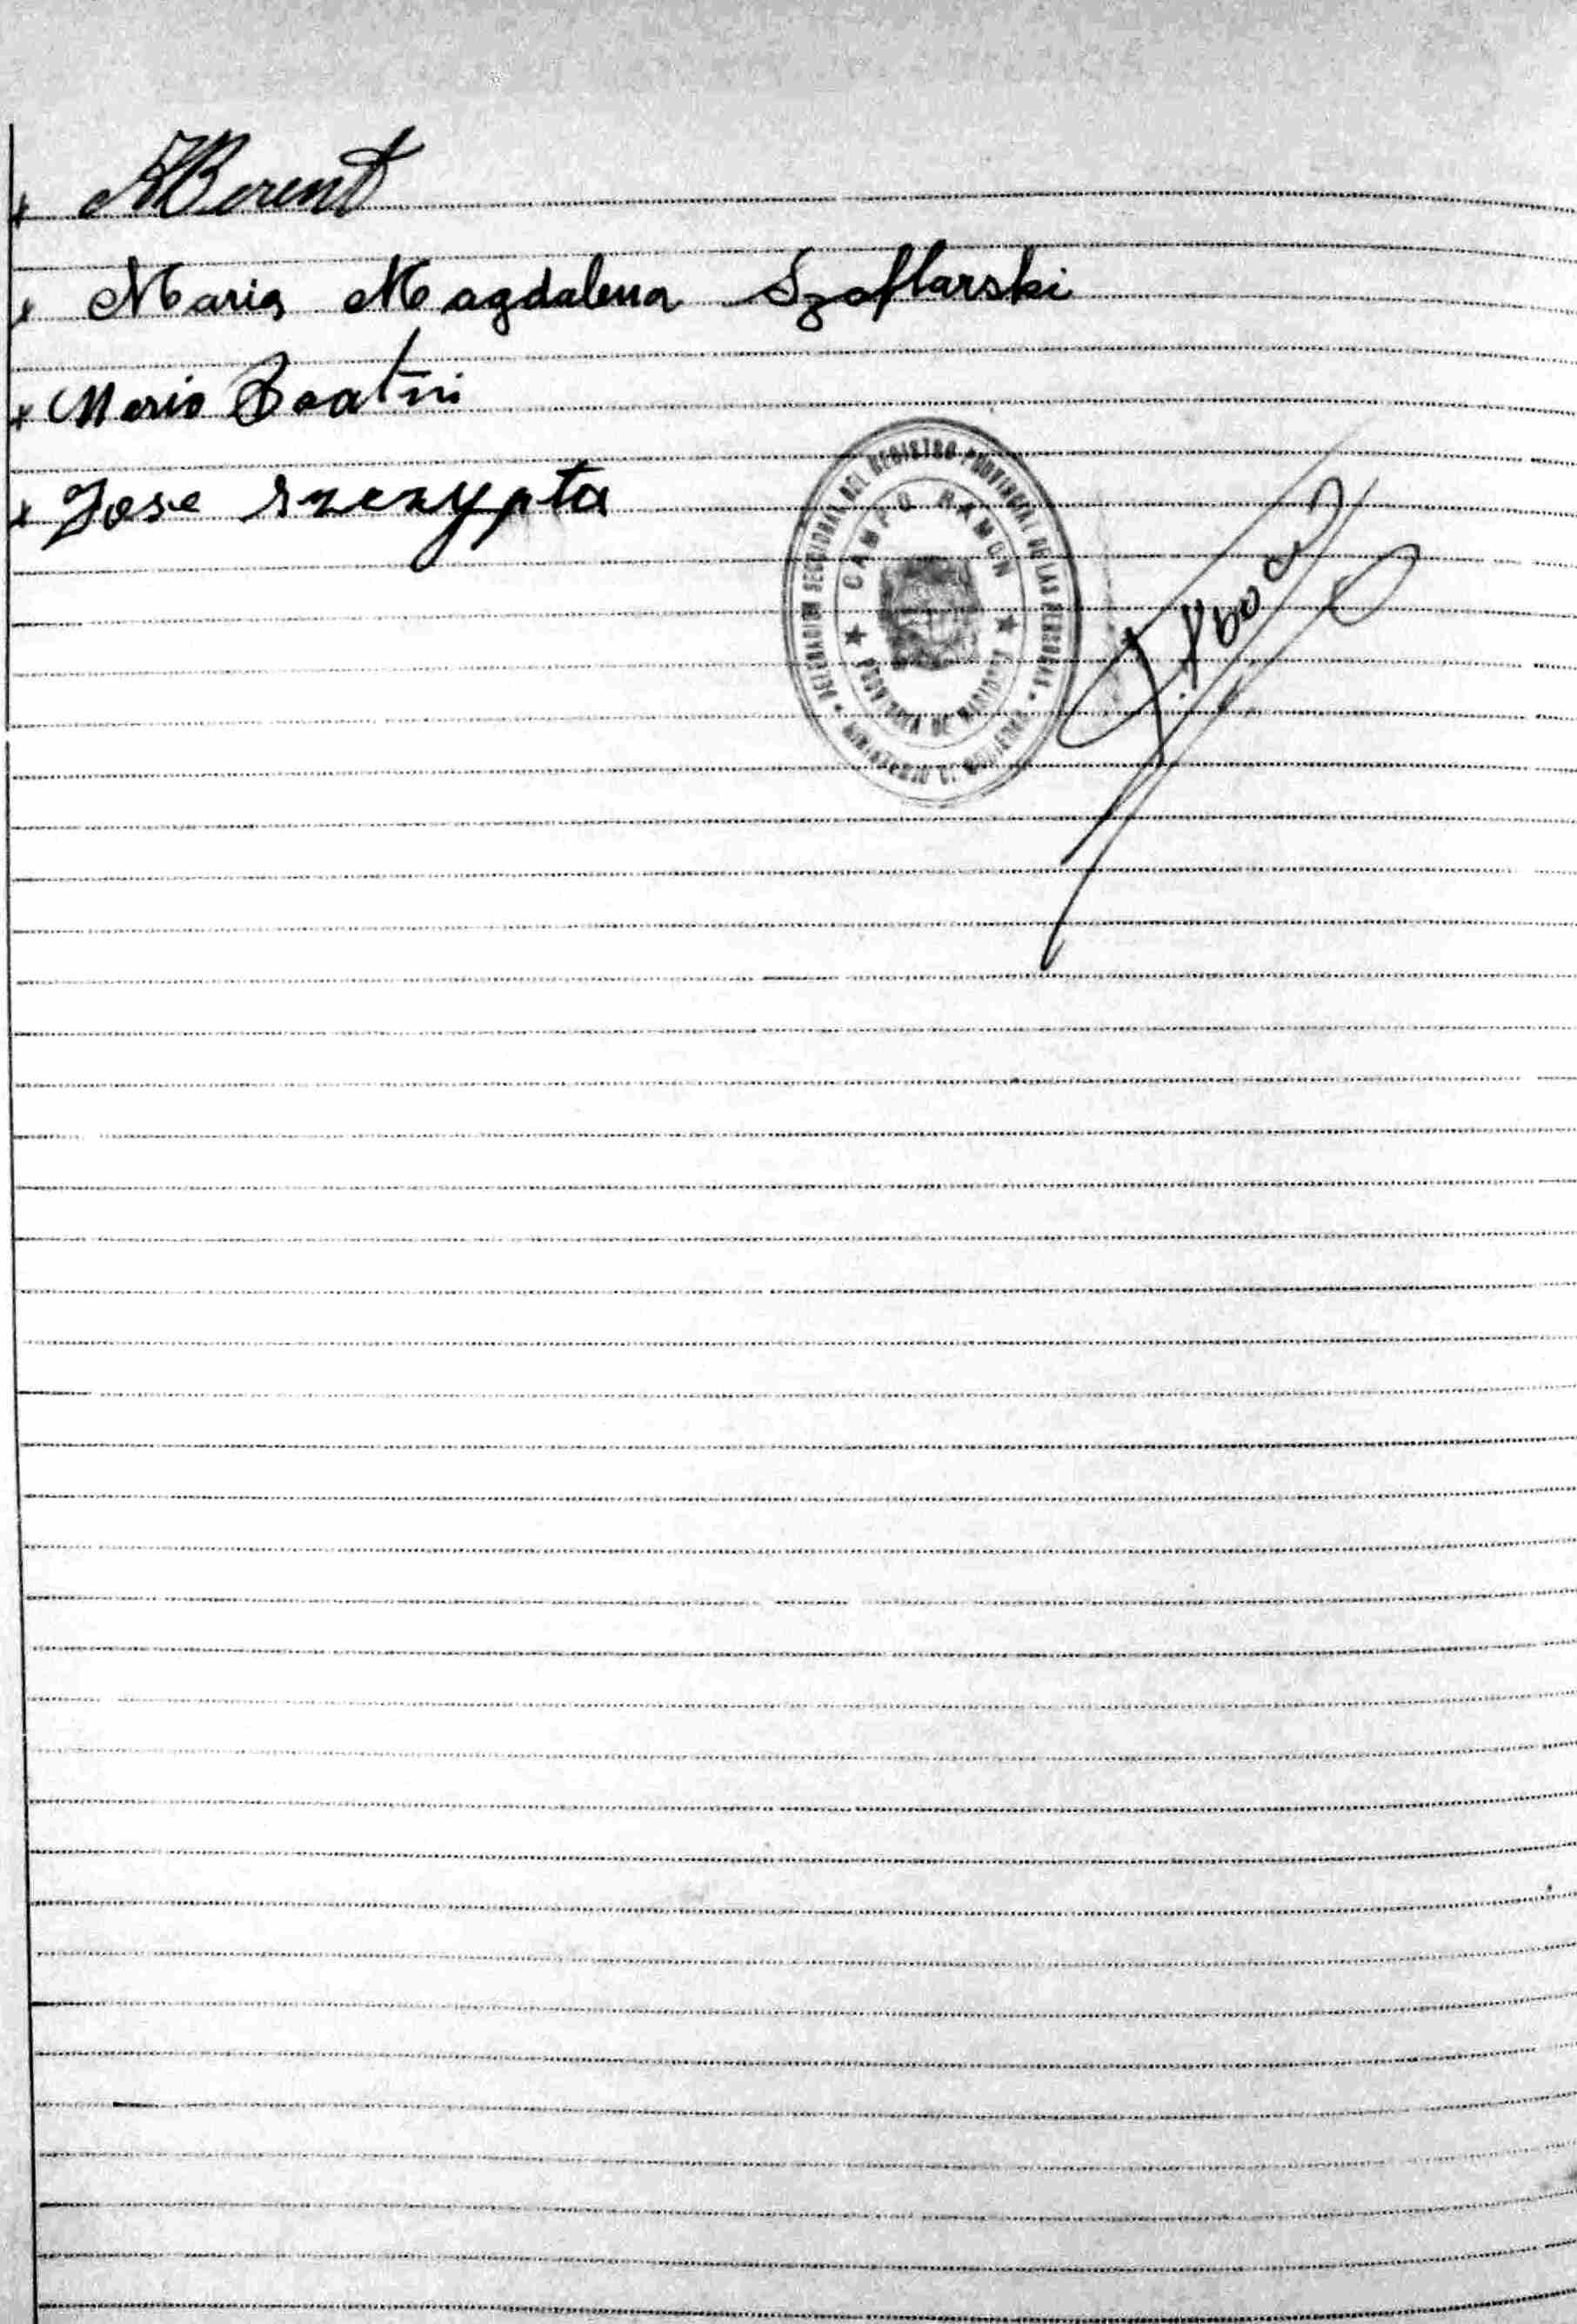 x ABerent
x Maria Magdalena Szaflarski
x Mario
x Jose Szczypta
DELEGACION SECCIONAL DEL REGISTRO PROVINCIAL DE LAS PERSONAS
CAMPO RAMON
PROVINCIA DE MISIONES
MINISTERIO DE GOBIERNO